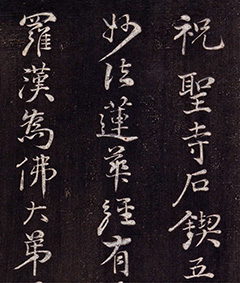 祝聖寺石鍥五
妙法蓮華經有
羅漢為佛大弟